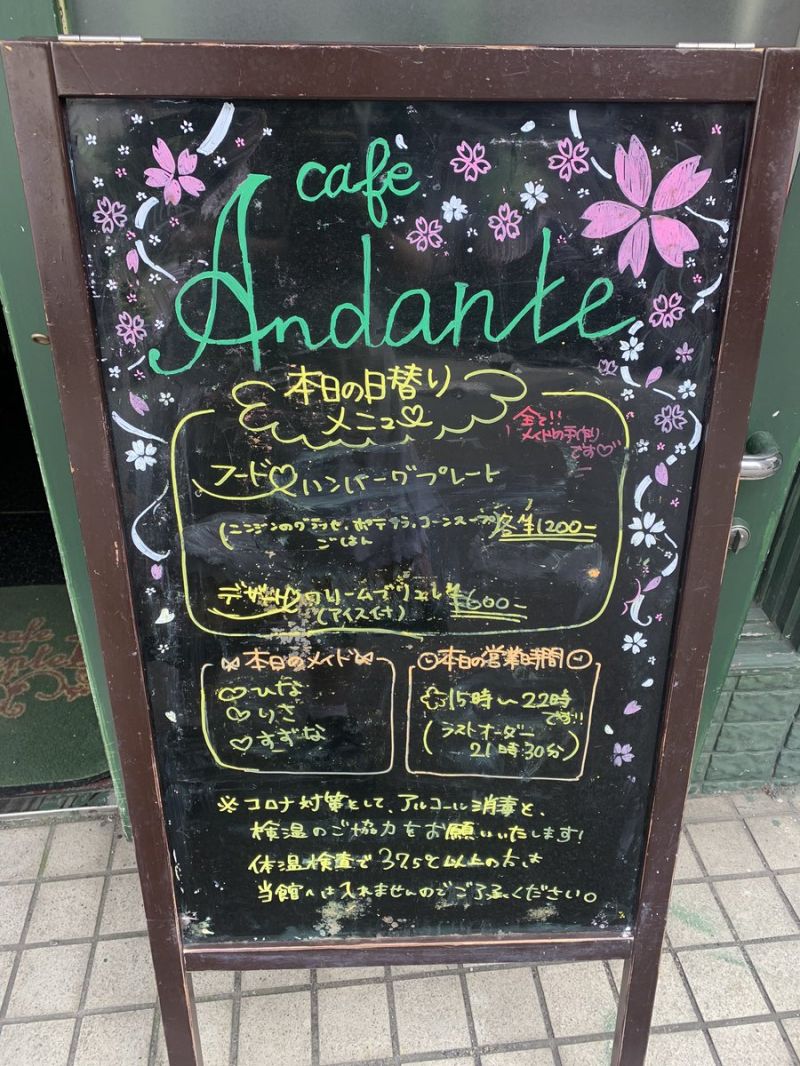 cafe
Andante
本日の日替り
メニュー
全て!!
メイドの手作り
です♡
フード♡ハンバーグプレート
(ニンジンのグラッセ、ポテサラ、コーンスープ
ごはん
各¥1200-
デザート♡クリームブリュレ
(アイス付)
¥600-
本日のメイド
♡ひな
♡りさ
♡すずな
本日の営業時間
15時〜22時
です!!
(ラストオーダー
21時30分)
※コロナ対策として、アルコール消毒と、
検温のご協力をお願いいたします!
体温検査で37.5℃以上の方は
当館へは入れませんのでご了承ください。
cafe